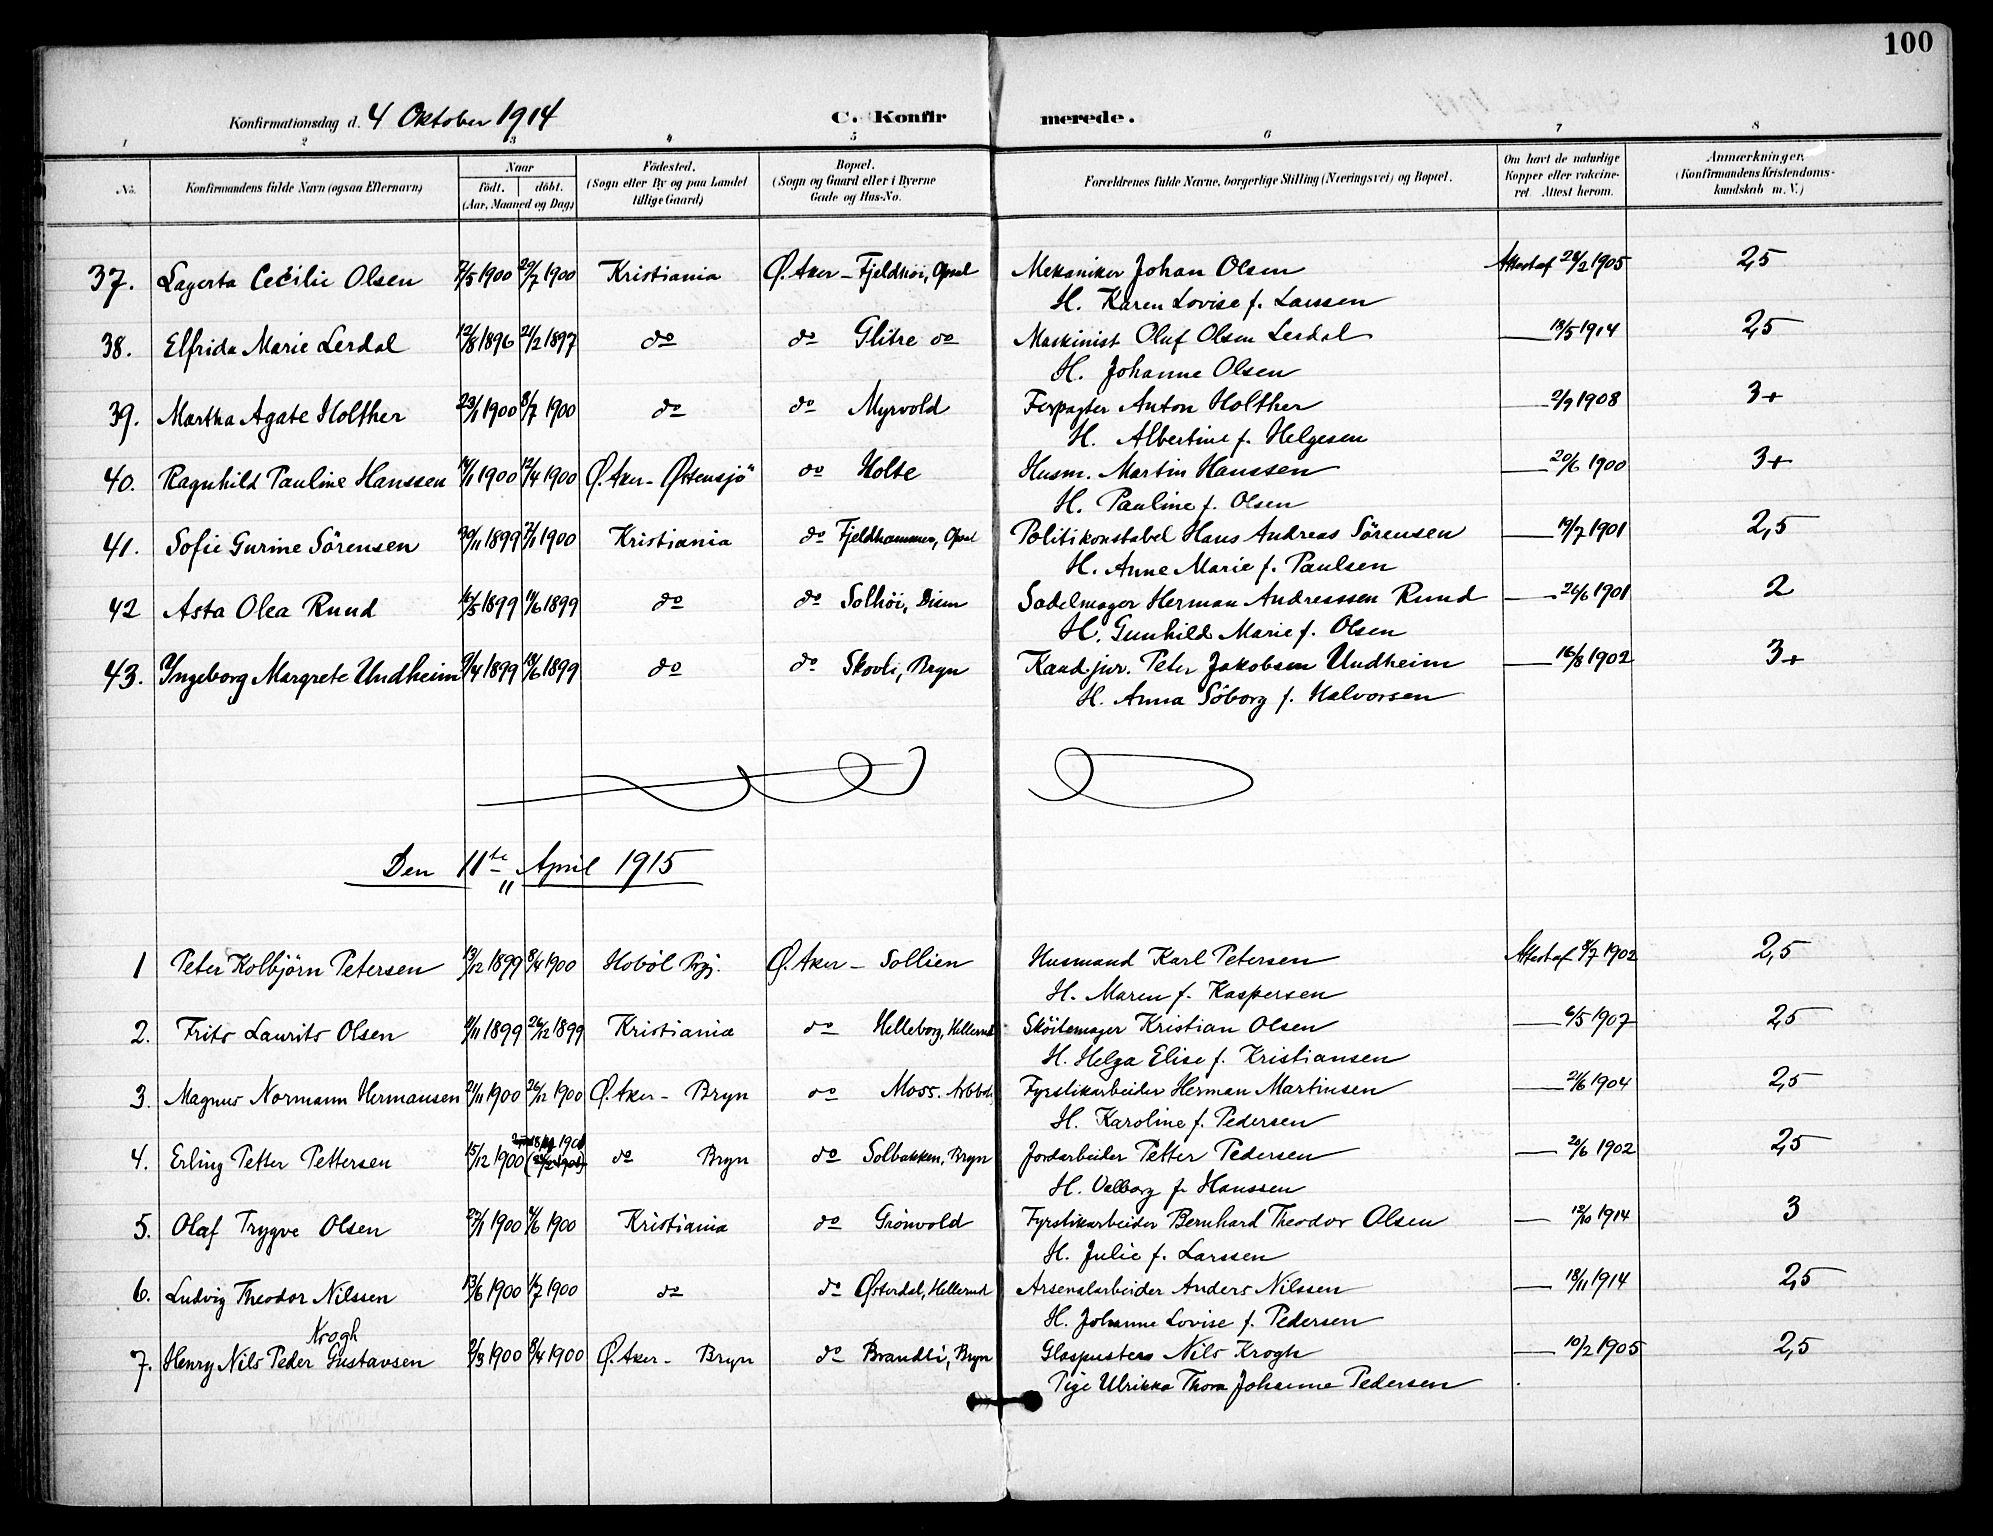 100
Konfirmationsdag d. 4 Oktober 1914 C. Konfirmerede.
1 2 3 4 5 6 7 8
No. Konfirmandens fulde Navn (ogsaa Efternavn) Naar født. døbt. (Aar, Maaned og Dag) Fødested. (Sogn eller By og paa Landet tillige Gaard) Bopæl. (Sogn og Gaard eller i Byerne Gade og Hus-No. Forældrenes fulde Navne, borgerlige Stilling (Næringsvei) og Bopæl. Om havt de naturlige Kopper eller vakcineret. Attest herom. Anmærkninger. (Konfirmandens Kristendomskundskab m. V.)
37. Lagerta Cecilie Olsen 7/5 1900 29/7 1900 Kristiania Ø. Aker – Fjeldhöi, Opsal Mekaniker Johan Olsen Attestaf 28/2 1905 2,5
H. Karen Lovise f. Larssen
38. Elfrida Marie Lerdal 12/8 1896 21/2 1897 do do Glitre do Maskinist Oluf Olsen Lerdal — 18/5 1914 2,5
H. Johanne Olsen
39. Martha Agate Holther 23/1 1900 8/7 1900 do do Myrvold Forpagter Anton Holther — 2/9 1908 3+
H. Albertine f. Helgesen
40. Ragnhild Pauline Hanssen 14/1 1900 12/4 1900 Ø. Aker – Østensjö do Holte Husm. Martin Hanssen — 20/6 1900 3+
H. Pauline f. Olsen
41. Sofie Gurine Sörensen 30/11 1899 7/1 1900 Kristiania do Fjeldhammer, Opsal Politikonstabel Hans Andreas Sörensen — 19/7 1901 2,5
H. Anne Marie f. Paulsen
42 Asta Olea Ruud 16/5 1899 11/6 1899 do do Solhöi, Disen Sadelmager Herman Andreassen Ruud — 26/6 1901 2
H. Gunhild Marie f. Olsen
43. Yngeborg Margrete Undheim 9/4 1899 18/6 1899 do do Skovli, Bryn Kand. jur. Peter Jakobsen Undheim — 16/8 1902 3+
H. Anna Söborg f. Halvorsen
Den 11te April 1915
1 Peter Kolbjörn Petersen 13/12 1899 8/4 1900 Hoböl Prgj. Ø. Aker – Sollien Husmand Karl Petersen Attestaf 8/7 1902 2,5
H. Maren f. Kaspersen
2. Frits Laurits Olsen 11/11 1899 26/12 1899 Kristiania do Helleborg, Hellerud Sköitemager Kristian Olsen — 6/5 1907 2,5
H. Helga Elise f. Kristiansen
3. Magnus Normann Hermansen 21/11 1900 26/12 1900 Ø. Aker – Bryn do Moss. Arbbol. Fyrstikarbeider Herman Martinsen — 21/6 1904 2,5
H. Karoline f. Pedersen
4. Erling Petter Pettersen 15/12 1900 do Bryn do Solbakken, Bryn Jordarbeider Petter Pedersen — 20/6 1902 2,5
H. Valborg f. Hanssen
5. Olaf Trygve Olsen 22/1 1900 4/6 1900 Kristiania do Grönvold Fyrstikarbeider Bernhard Theodor Olsen — 12/10 1914 3
H. Julie f. Larssen
6. Ludvig Theodor Nilssen 13/6 1900 1/7 1900 do do Østerdal, Hellerud Arsenalarbeider Anders Nilssen — 18/11 1914 2,5
H. Johanne Lovise f. Pedersen
Krogh
7. Henry Nils Peder Gustavsen 2/3 1900 8/4 1900 Ø. Aker – Bryn do Brandli, Bryn Glaspusters Nils Krogh — 10/2 1905 2,5
Pige Ulrikka Thora Johanne Pedersen